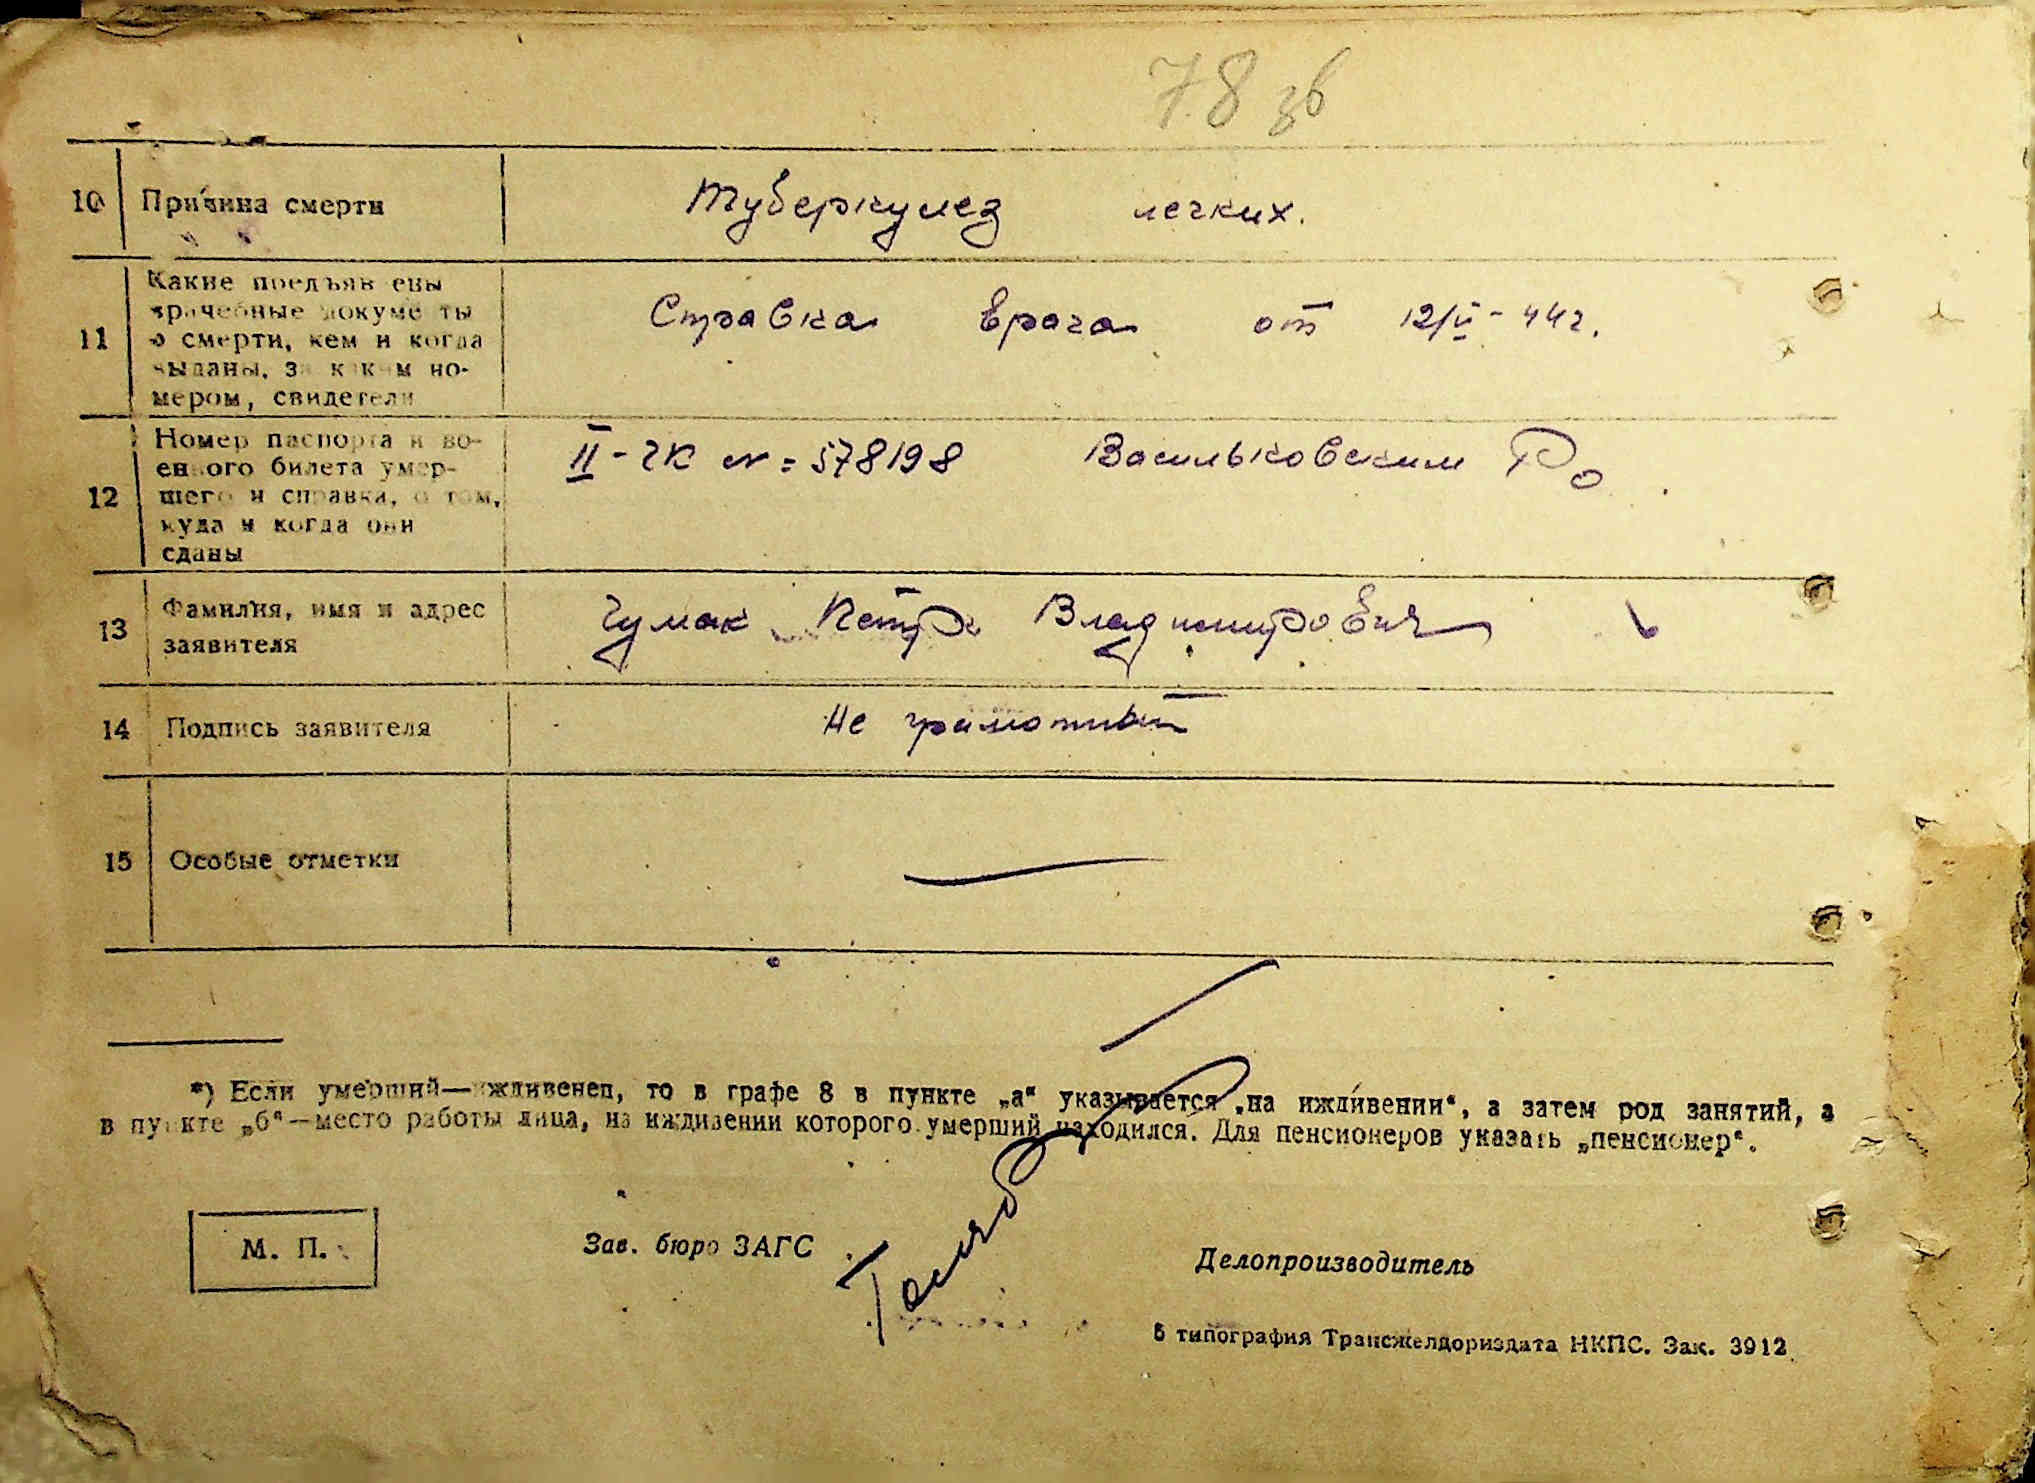 78 зв
10 Причина смерти Туберкулез легких.
11 Какие предъяв ены
врачебные докуме ты
о смерти, кем и когда
выданы, за каким но-
мером, свидетели
Справка врача от 12/VI-44г.
12 Номер паспорта и во-
енного билета умер-
шего и справка, о том,
куда и когда они
сданы
II-ЧК № = 578198 Васильковским РО
13 Фамилия, имя и адрес
заявителя
Чумак Петр Владимирович
14 Подпись заявителя Не грамотный
15 Особые отметки —
*) Если умерший—иждивенец, то в графе 8 в пункте „а“ указывается „на иждивении“, а затем род занятий, а
в пункте „б“—место работы лица, на иждивении которого умерший находился. Для пенсионеров указать „пенсионер“.
М. П.
Зав. бюро ЗАГС
Делопроизводитель
6 типография Трансжелдориздата НКПС. Зак. 3912